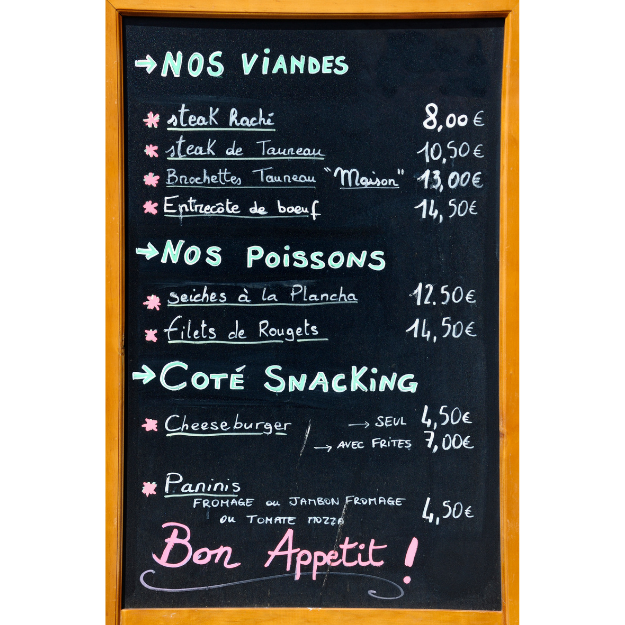 → NOS VIANDES
* steak Haché 8,00€
* steak de Taureau 10,50€
* Brochettes Taureau "Maison" 13,00€
* Entrecôte de boeuf 14,50€
→ NOS POISSONS
* seiches à la Plancha 12.50€
* filets de Rougets 14,50€
→ COTÉ SNACKING
* Cheeseburger → SEUL 4,50€
/ → AVEC FRITES 7,00€
* Paninis
FROMAGE ou JAMBON FROMAGE 4,50€
ou TOMATE MOZZA
Bon Appétit !